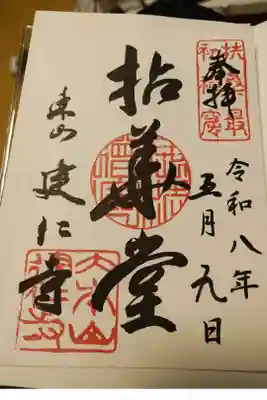 扶桑最
初禅窟
奉拝
令和八年
五月九日
拈華堂
東山
建仁寺